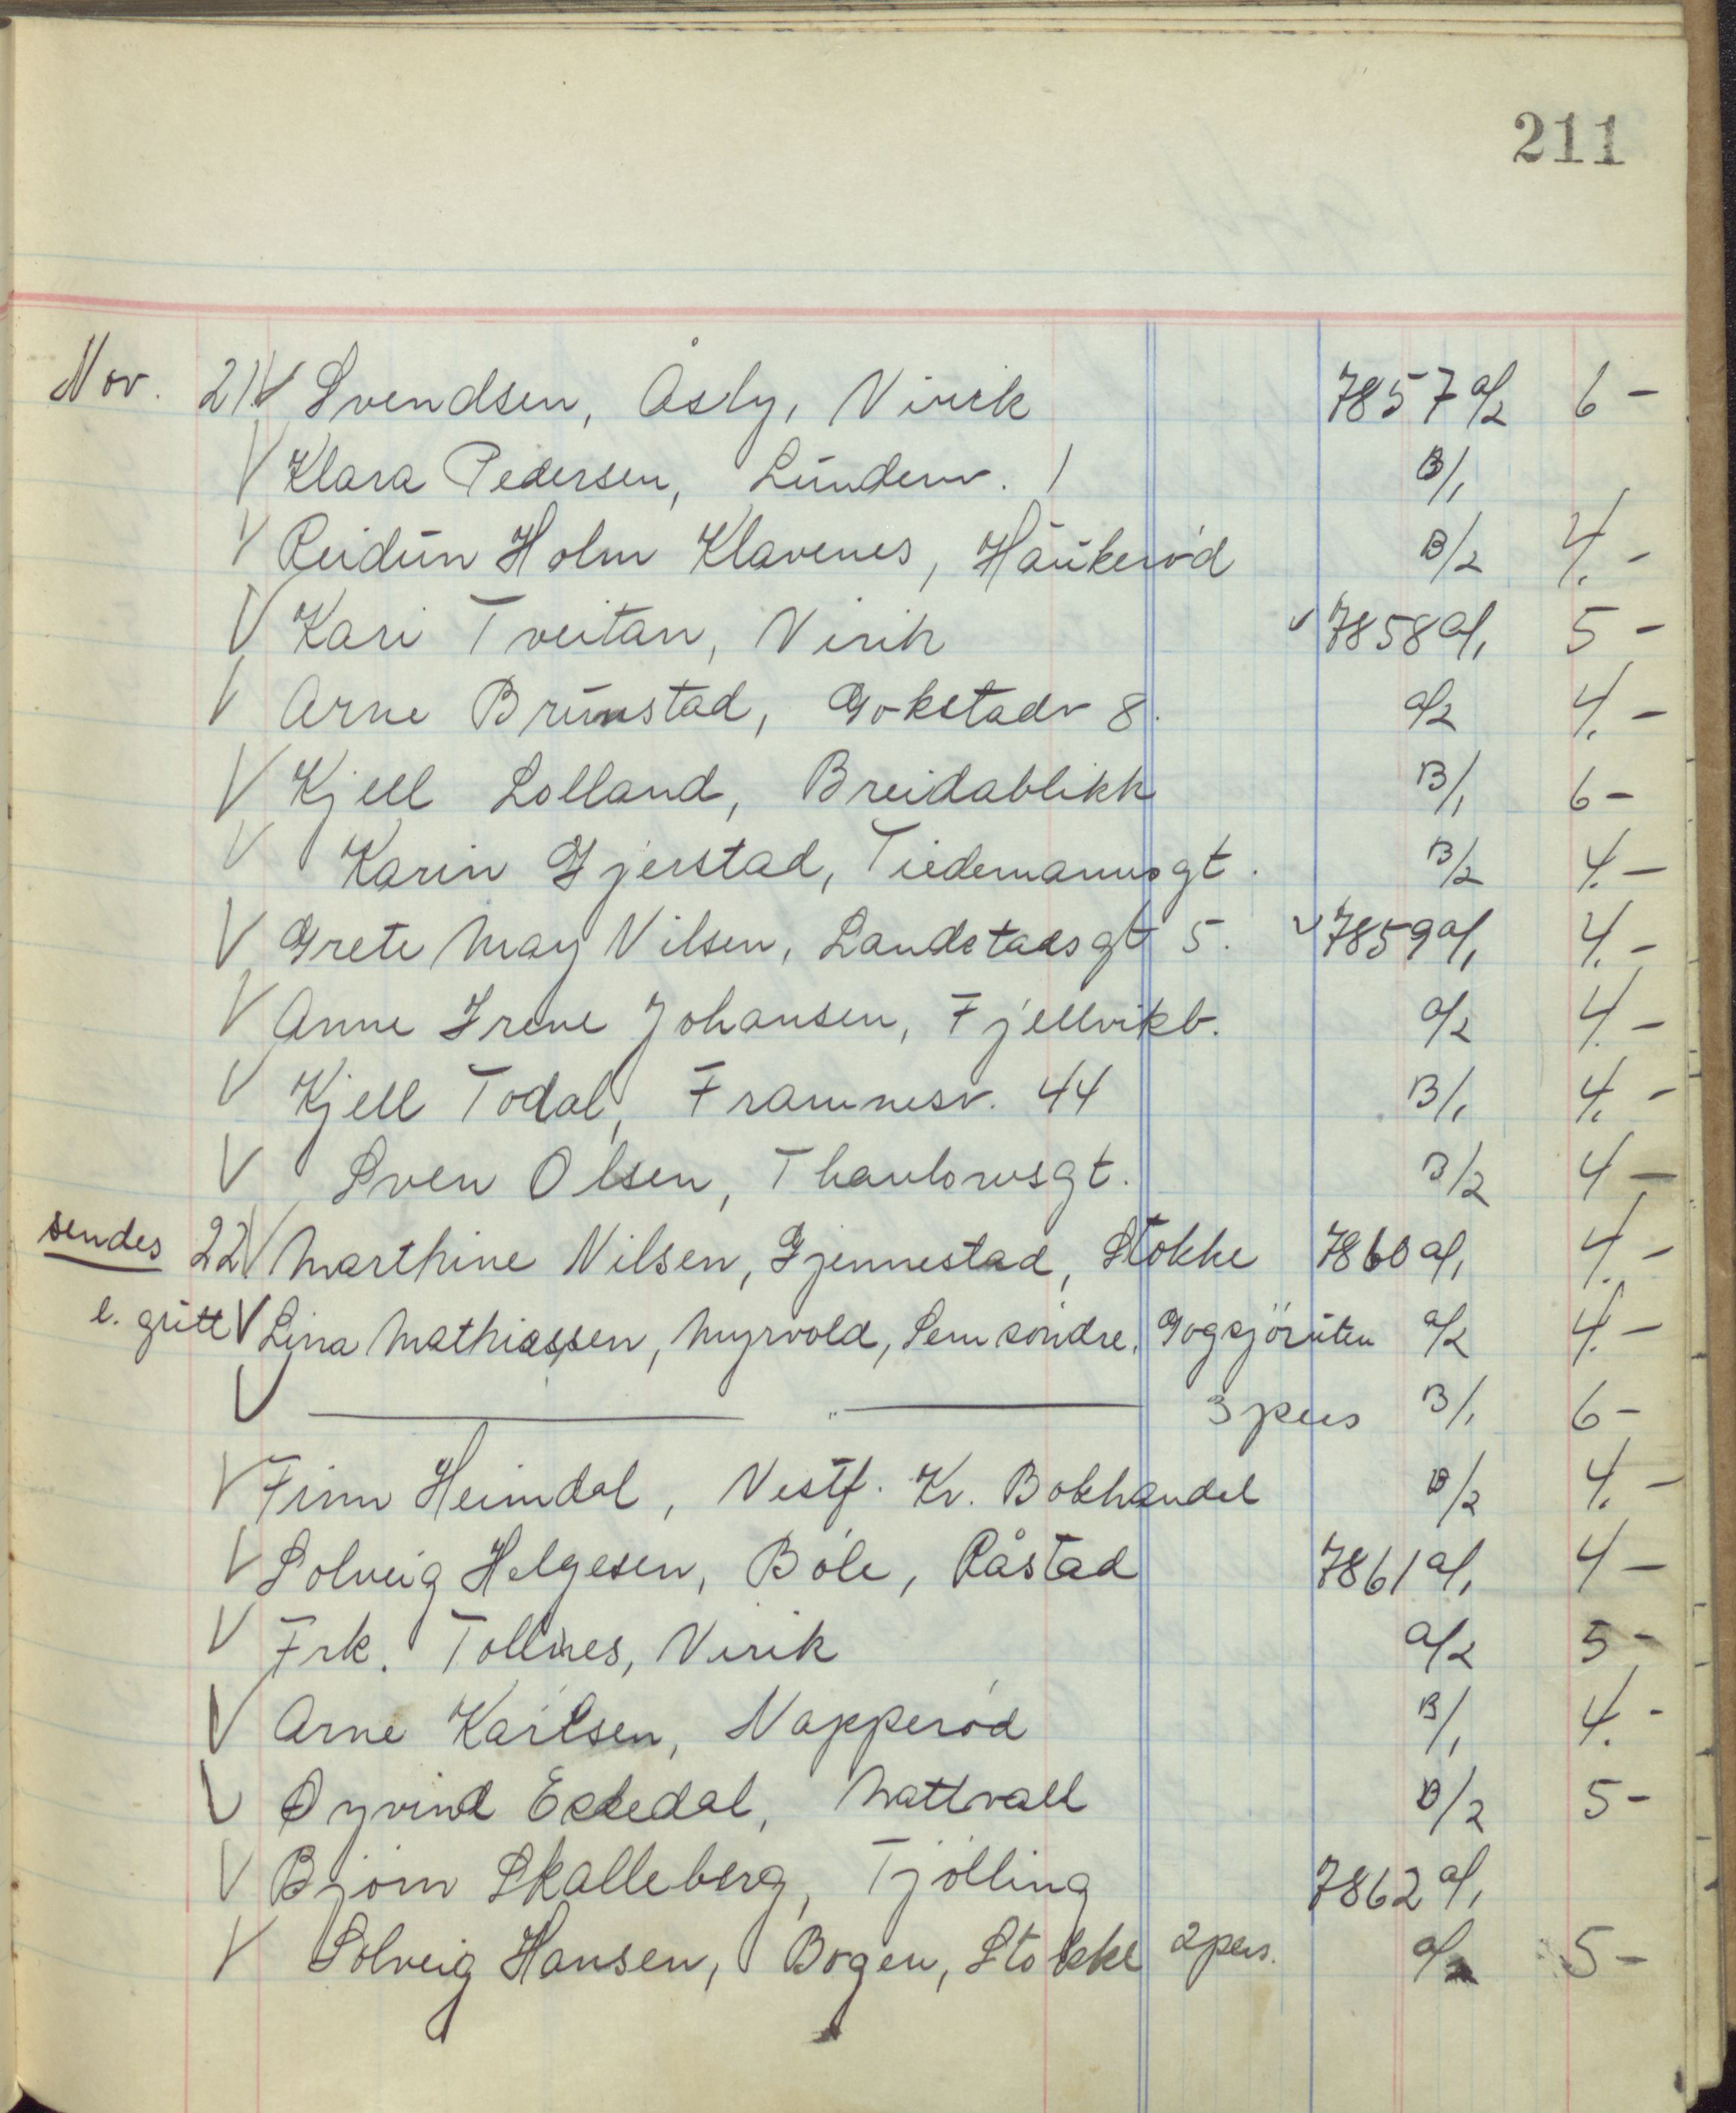 211
Nov. 21 V Svendsen, Åsly, Virik 7857 a/2 6 -
V Klara Pedersen, Lundenv. 1 B/1
V Reidun Holm Klavenes, Haukerød B/2 4. -
V Kari Tveitan, Virik √ 7858 a/1 5 -
V Arne Brunstad, Gokstadv 8. a/2 4. -
V Kjell Lolland, Breidablikk B/1 6 -
V Karin Gjerstad, Tiedemannsgt. B/2 4. -
V Grete May Nilsen, Landstadsgt 5. √ 7859 a/1 4. -
V Anne Irene Johansen, Fjellvikb. a/2 4. -
V Kjell Todal, Framnesv. 44 B/1 4. -
V Sven Olsen, Thaulowsgt. B/2 4 -
sendes 22 V Marthine Nilsen, Gjennestad, Stokke 7860 a/1 4. -
l. gutt V Lina Mathiassen, Myrvold, Sem søndre, Gogsjøruten a/2 4. -
V — " — 3 pers B/1 6 -
V Finn Heimdal, Vestf. Kr. Bokhandel B/2 4. -
V Solveig Helgesen, Bøle, Råstad 7861 a/1 4 -
V Frk. Tollnes, Virik a/2 5 -
V Arne Karlsen, Napperød B/1 4. -
V Øyvind Eskedal, Mattvall B/2 5 -
V Bjørn Skalleberg, Tjølling 7862 a/1
V Solveig Hansen, Bogen, Stokke 2 pers. a/2 5 -